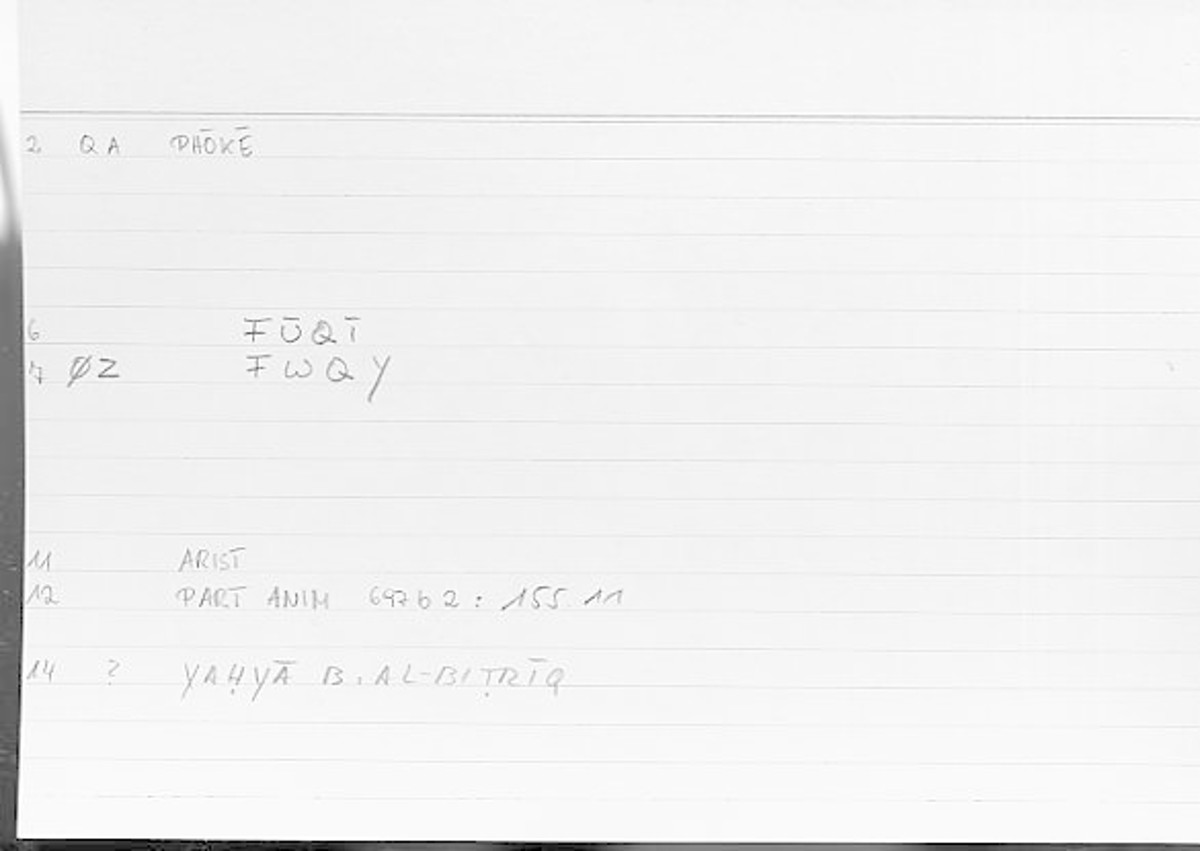 2 QA PHŌKĒ
6 FŪQĪ
7 ØZ FWQY
11 ARIST
12 PART ANIM 697b2: 155.11
14 ? YAḤYĀ B. AL-BIṬRĪQ